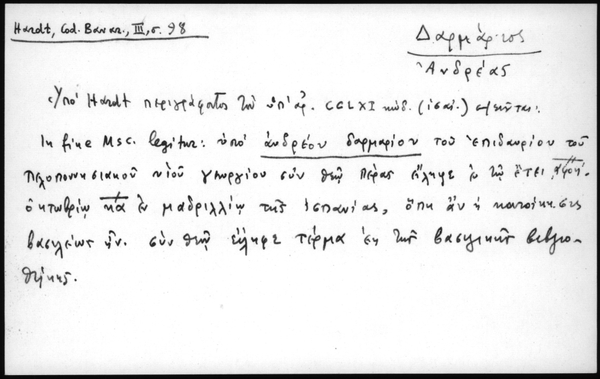 Hardt, Cod. Bavar., III, σ. 98
Δαρμάριος
Ἀνδρέας
Ὑπὸ Hardt περιγράφοντος τὸν ὑπ' ἀρ. CCLXI κώδ. σημειοῦται:
In fine Msc. legitur: ὑπὸ ἀνδρέου δαρμαρίου τοῦ ἐπιδαυρίου τοῦ
πελοποννησιακοῦ υἱοῦ γεωργίου σὺν θεῷ πέρας εἴληφε ἐν τῷ ἔτει
ὀκτωβρίῳ κα ἐν μαδριλλίῳ τῆς ἱσπανίας, ὅπη ἂν ἡ κατοίκησις
βασιλέως ἦν. σὺν θεῷ εἴληφε τέρμα ἐκ τῆς βασιλικῆς βιβλιο-
θήκης.